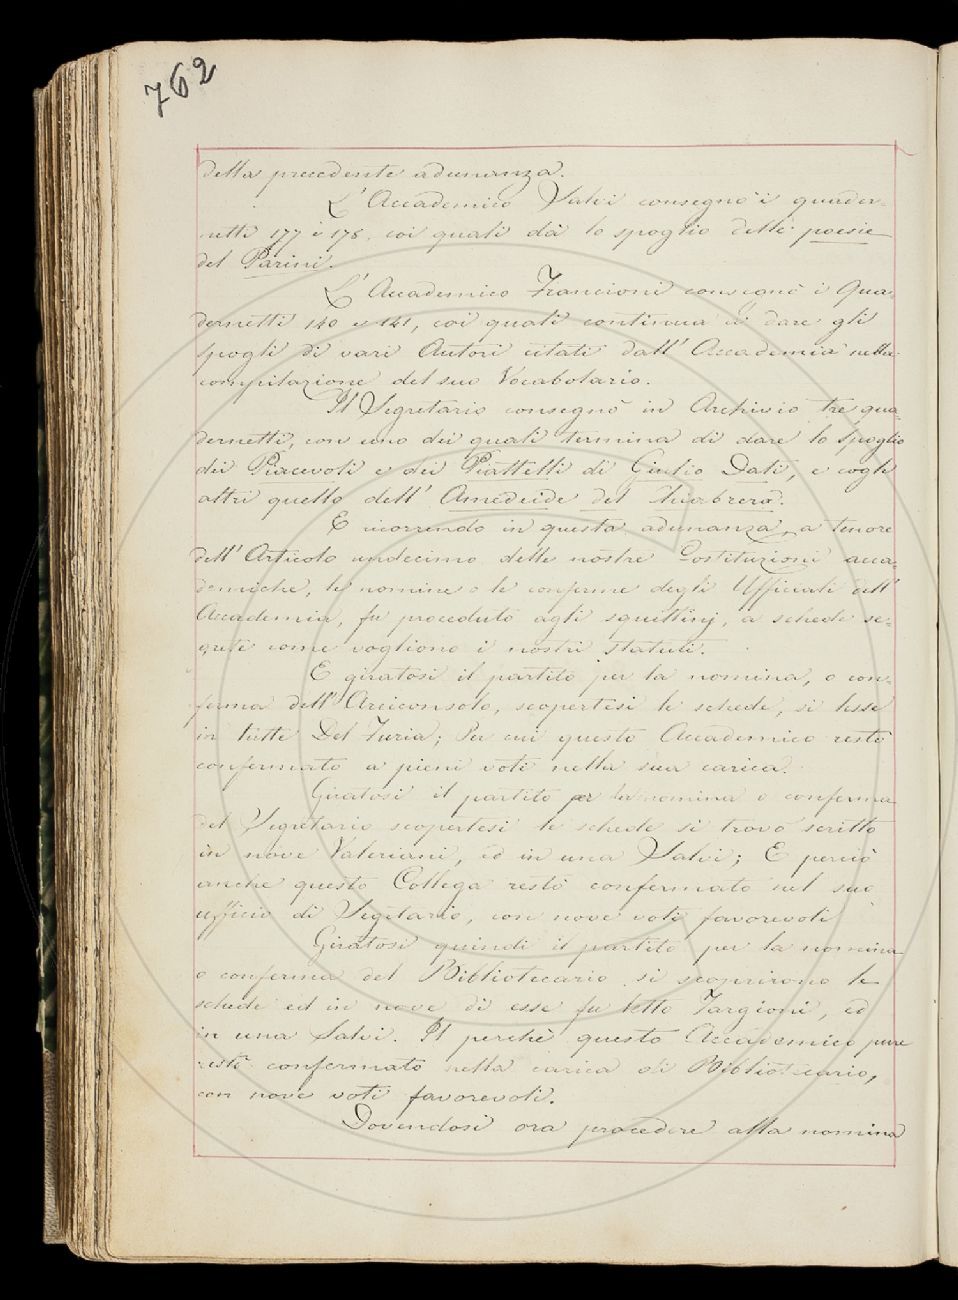 762
della precedente adunanza.
L'Accademico Salvi consegnò i quader-
netti 177 e 178, coi quali dà lo spoglio delle poesie
del Parini.
L'Accademico Francioni consegnò i Qua-
dernetti 140 e 141, coi quali continua a dare gli
spogli di vari Autori citati dall'Accademia nella
compilazione del suo Vocabolario.
Il Segretario consegnò in Archivio tre qua-
dernetti, con uno dei quali termina di dare lo spoglio
dei Piacevoli e dei Piattelli di Giulio Dati, e cogli
altri quello dell'Amedeide del Chiabrera.
E ricorrendo in questa adunanza, a tenore
dell'Articolo undecimo delle nostre Costituzioni acca-
demiche, le nomine o le conferme degli Ufficiali dell'
Accademia, fu proceduto agli squittinj, a schede se-
grete come vogliono i nostri statuti.
E giratosi il partito per la nomina, o con-
ferma dell'Arciconsolo, scopertesi le schede, si lesse
in tutte Del Furia; Per cui questo Accademico restò
confermato a pieni voti nella sua carica.
Giratosi il partito per la nomina o conferma
del Segretario scopertesi le schede si trovò scritto
in nove Valeriani, ed in una Salvi; E perciò
anche questo Collega restò confermato nel suo
ufficio di Segretario, con nove voti favorevoli
Giratosi quindi il partito per la nomina
o conferma del Bibliotecario si scoprirono le
schede ed in nove di esse fu letto Targioni, ed
in una Salvi. Il perchè questo Accademico pure
restò confermato nella carica di Bibliotecario,
con nove voti favorevoli.
Dovendosi ora procedere alla nomina